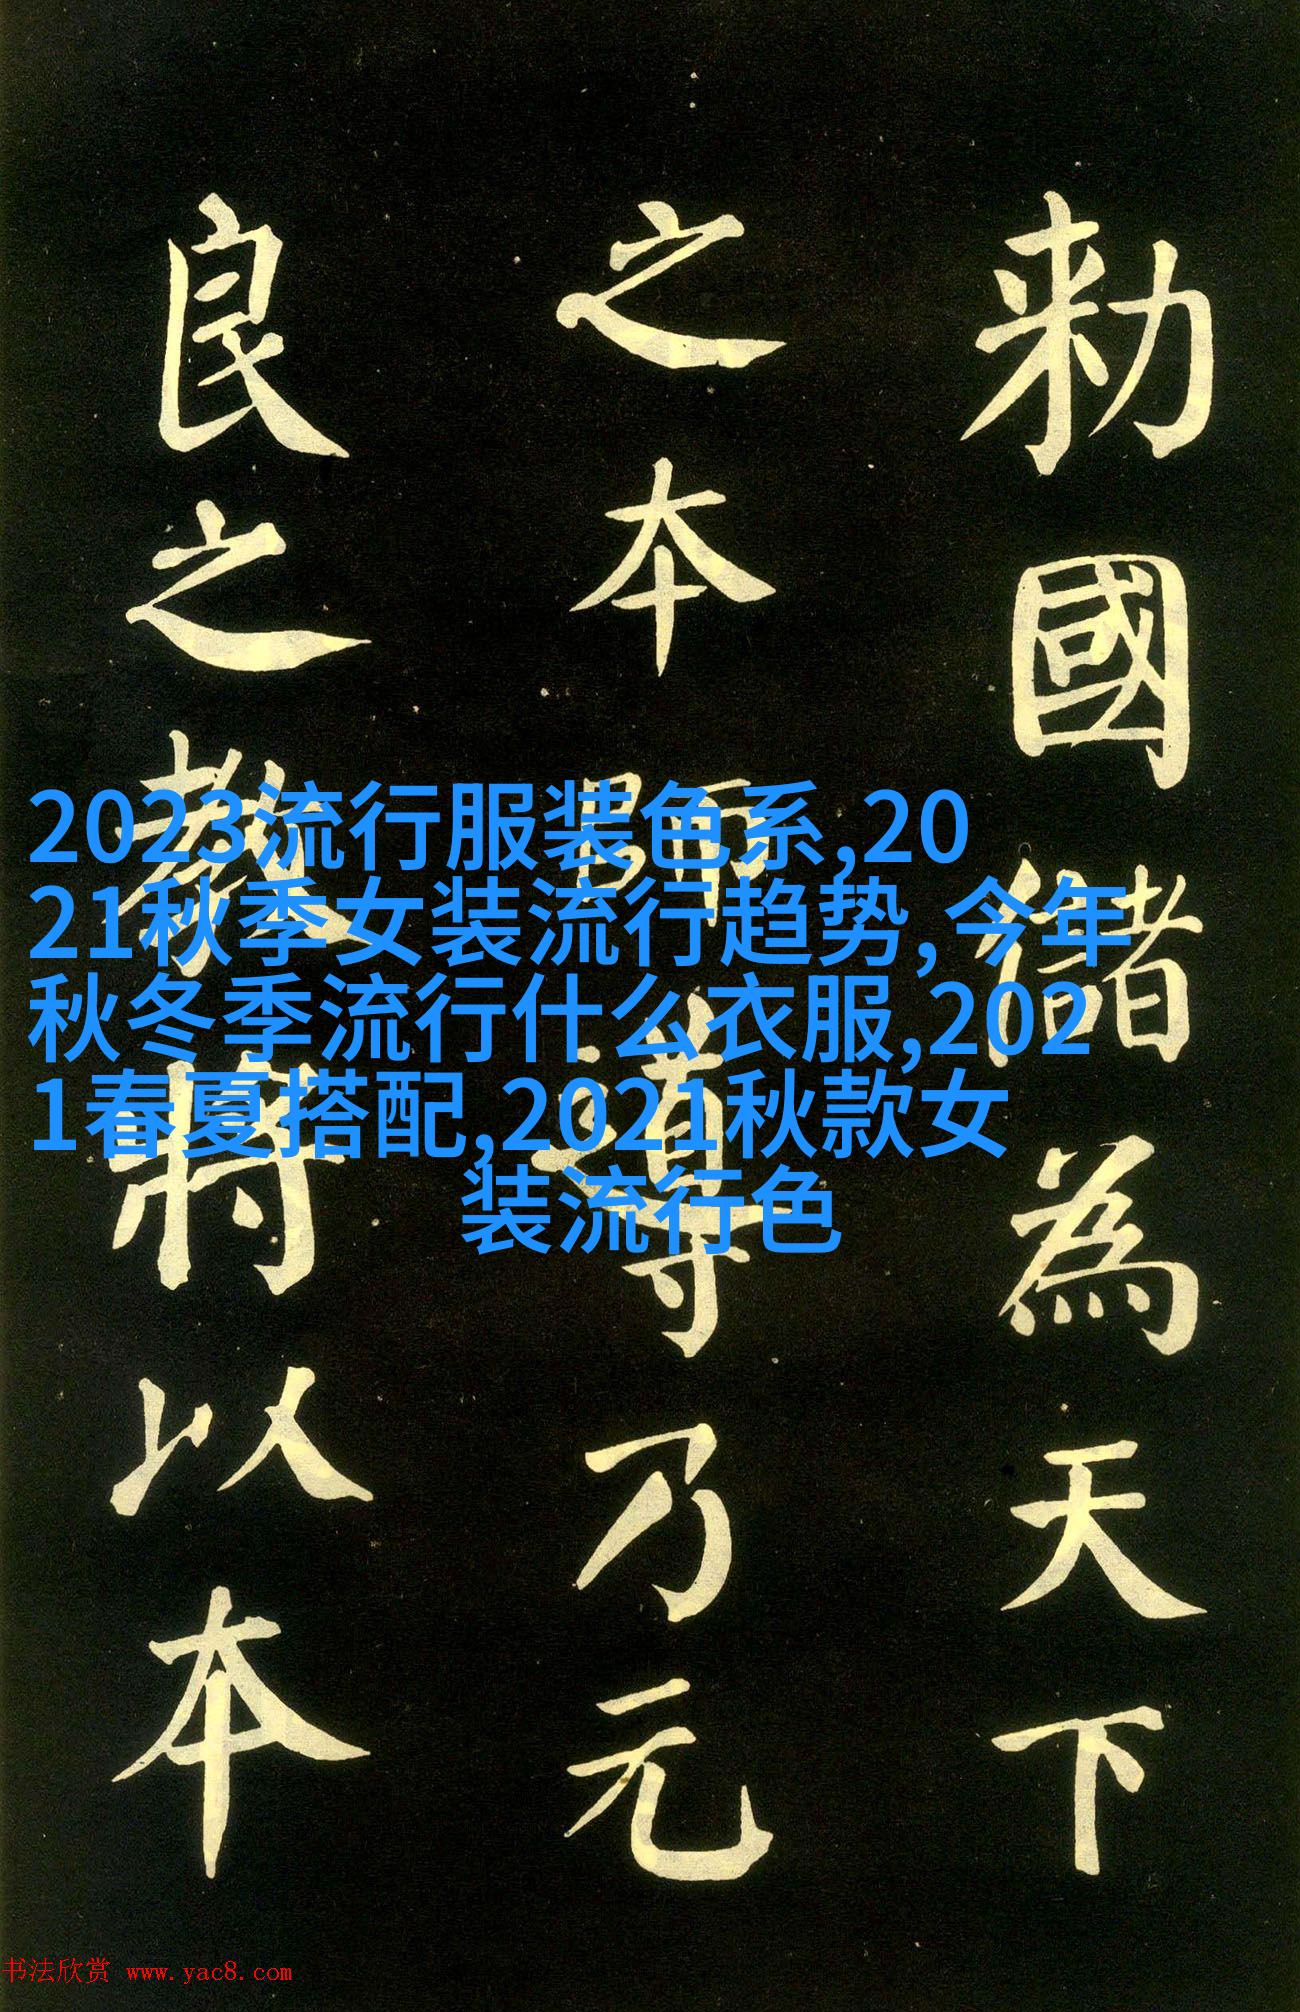 勑國儲為天下
之本師導乃元
良之教將以本
2023流行服装色系,20
21秋季女装流行趋势,今年
秋冬季流行什么衣服,202
1春夏搭配,2021秋款女
装流行色
书法欣赏 www.yac8.com